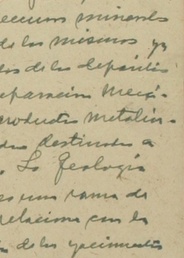 recursos minerales
de los mismos ya
dos de los depósitos
eparación Mecá-
productos metalúr-
dos destinados a
La Geología
es una rama de
relaciona con la
de los yacimientos